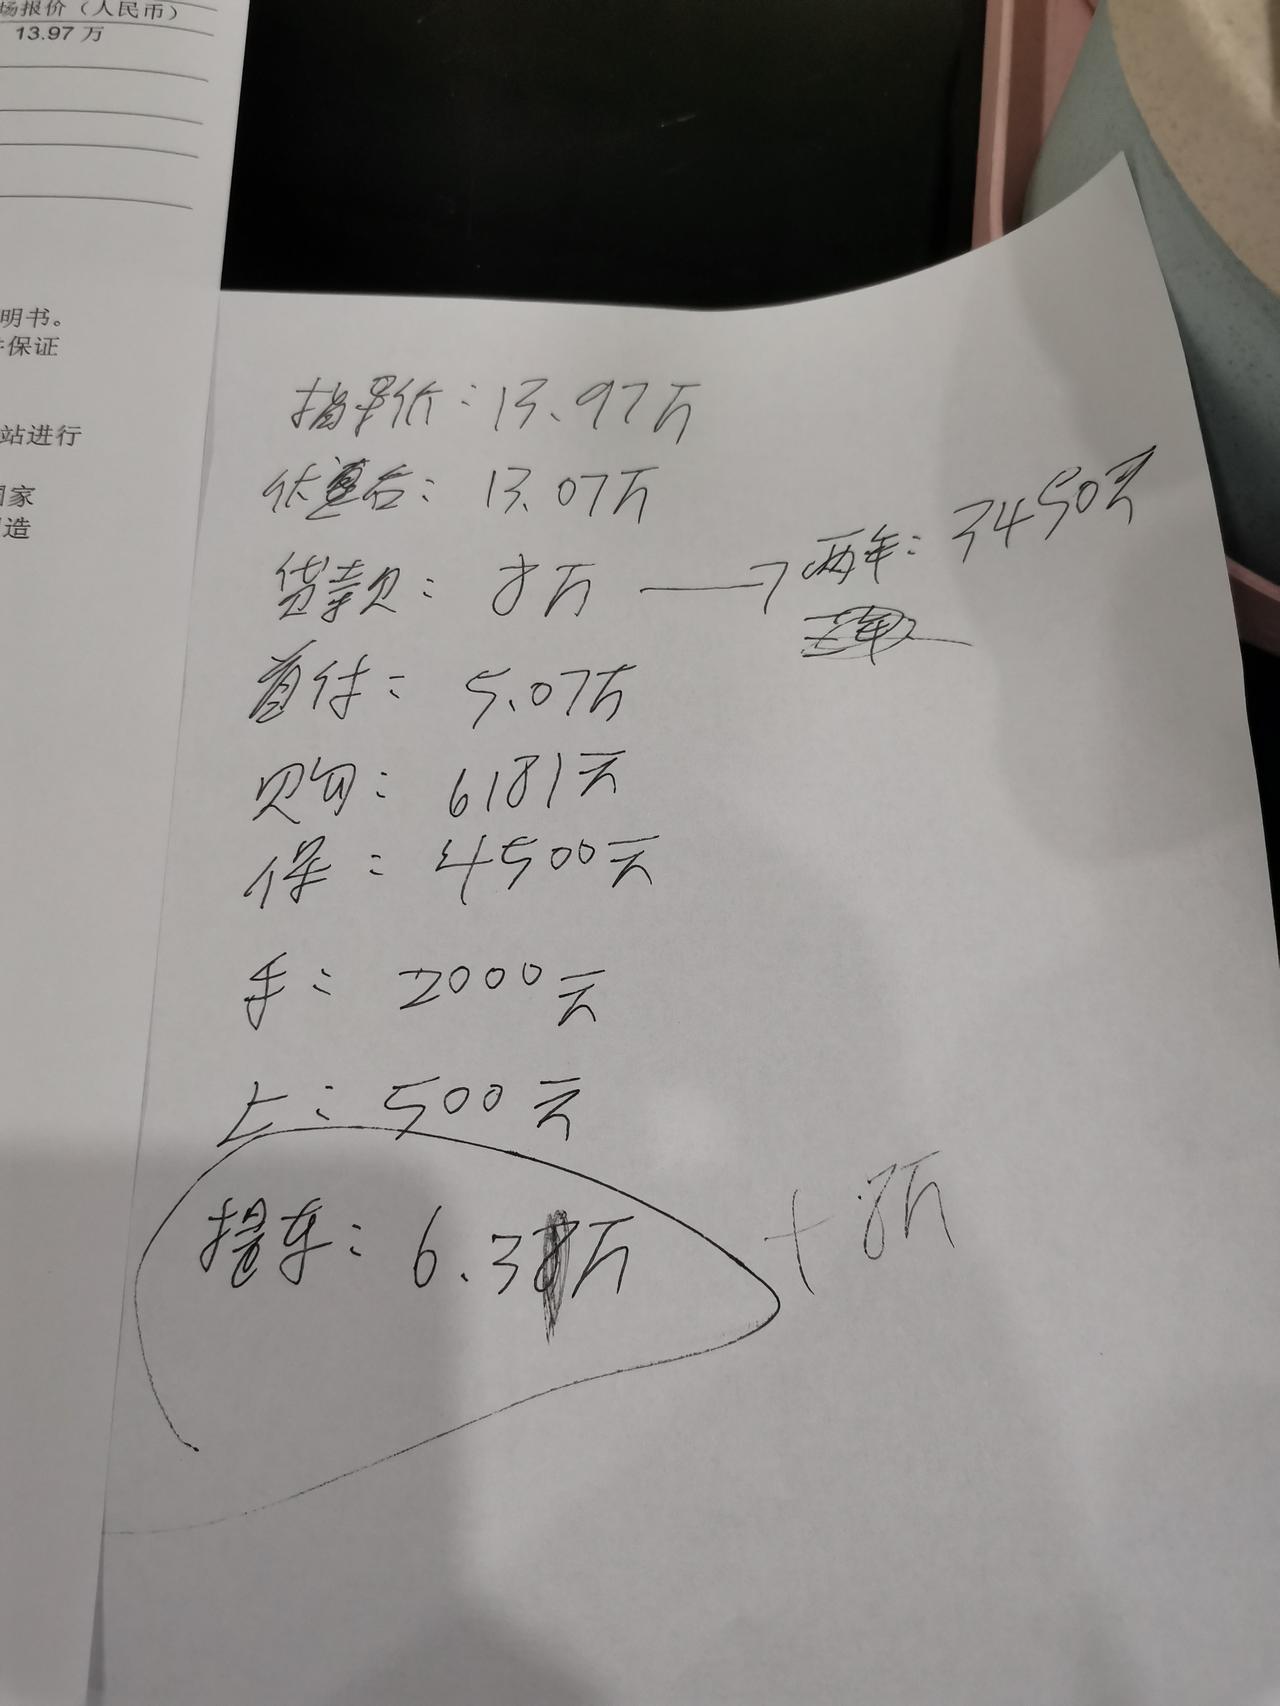 场报价（人民币）
13.97 万
明书。
保证
站进行
国家
造
指导价：13.97万
优惠后：13.07万
贷款：8万 → 两年：3450元
三年
首付：5.07万
购：6181元
保：4500元
手：2000元
上：500元
提车：6.3万 + 8万